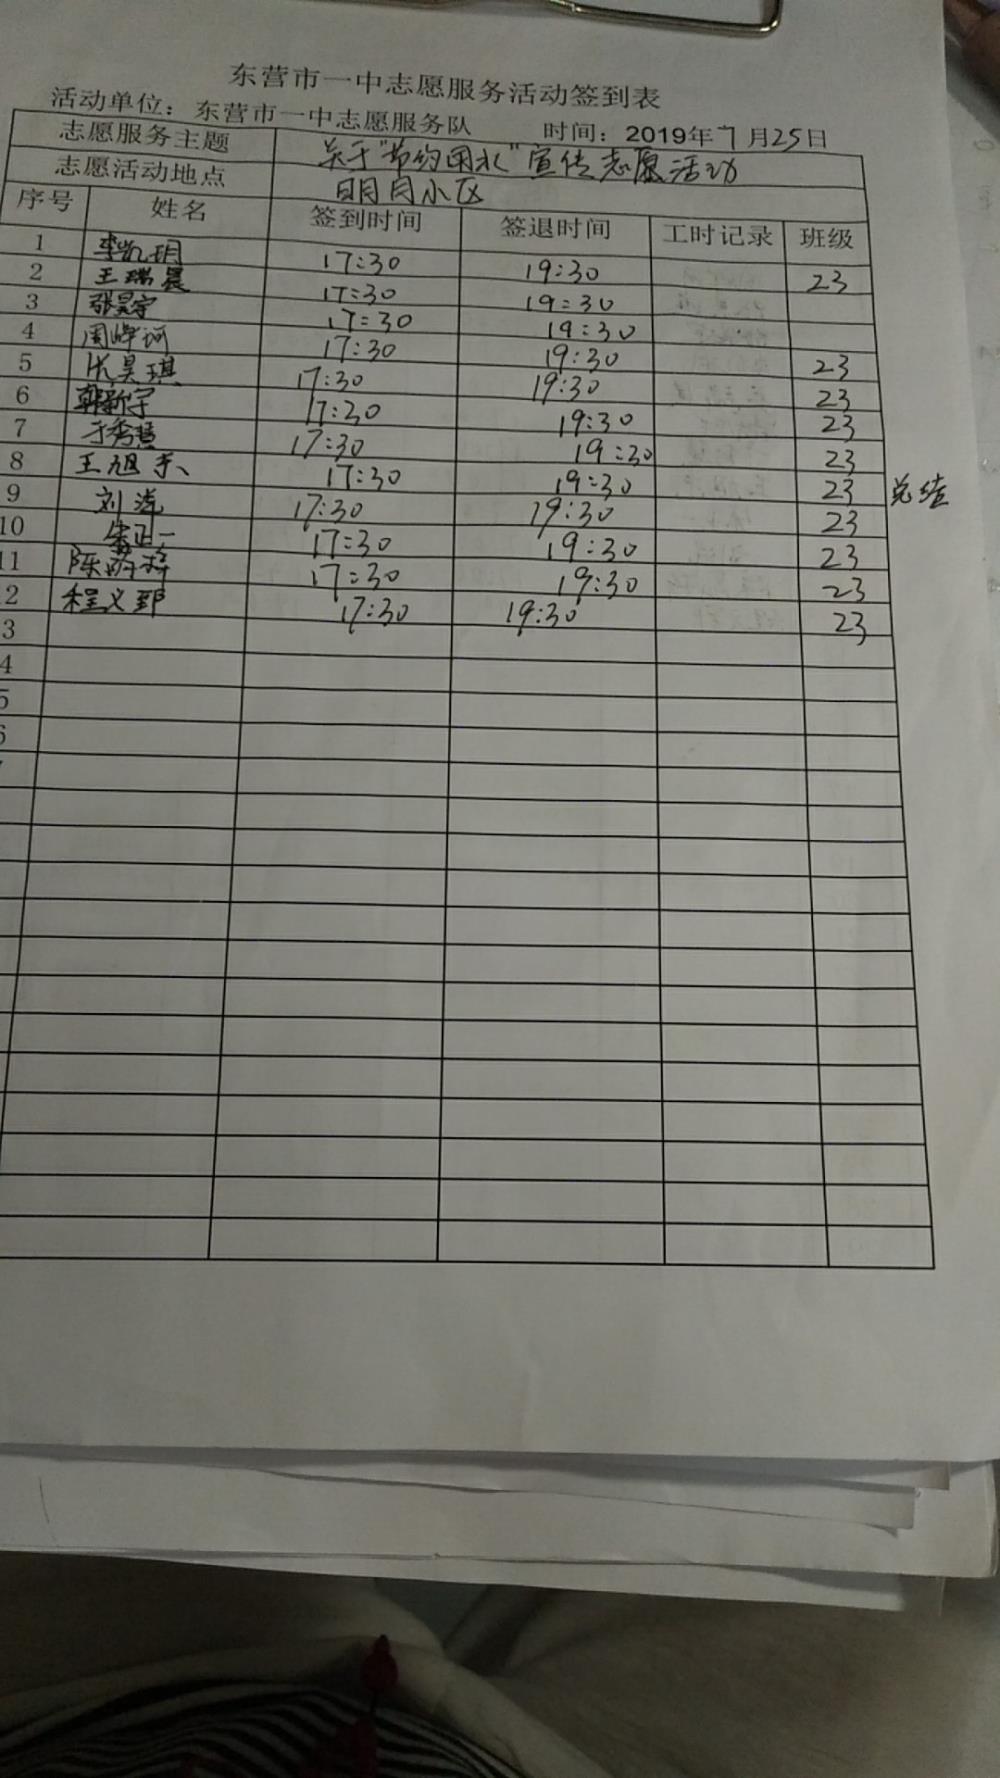 东营市一中志愿服务活动签到表
活动单位：东营市一中志愿服务队 时间：2019年7月25日
志愿服务主题 关于"节约用水"宣传志愿活动
志愿活动地点 明月小区
序号 姓名 签到时间 签退时间 工时记录 班级
1 李凯玥 17:30 19:30 23
2 王瑞晨 17:30 19:30
3 张昊宇 17:30 19:30
4 周峰河 17:30 19:30 23
5 张昊琪 17:30 19:30 23
6 韩新宇 17:30 19:30 23
7 于秀慧 17:30 19:30 23
8 王旭东 17:30 19:30 23 总结
9 刘 17:30 19:30 23
10 朱正一 17:30 19:30 23
11 陈 17:30 19:30 23
2 程义郅 17:30 19:30 23
3
4
5
6